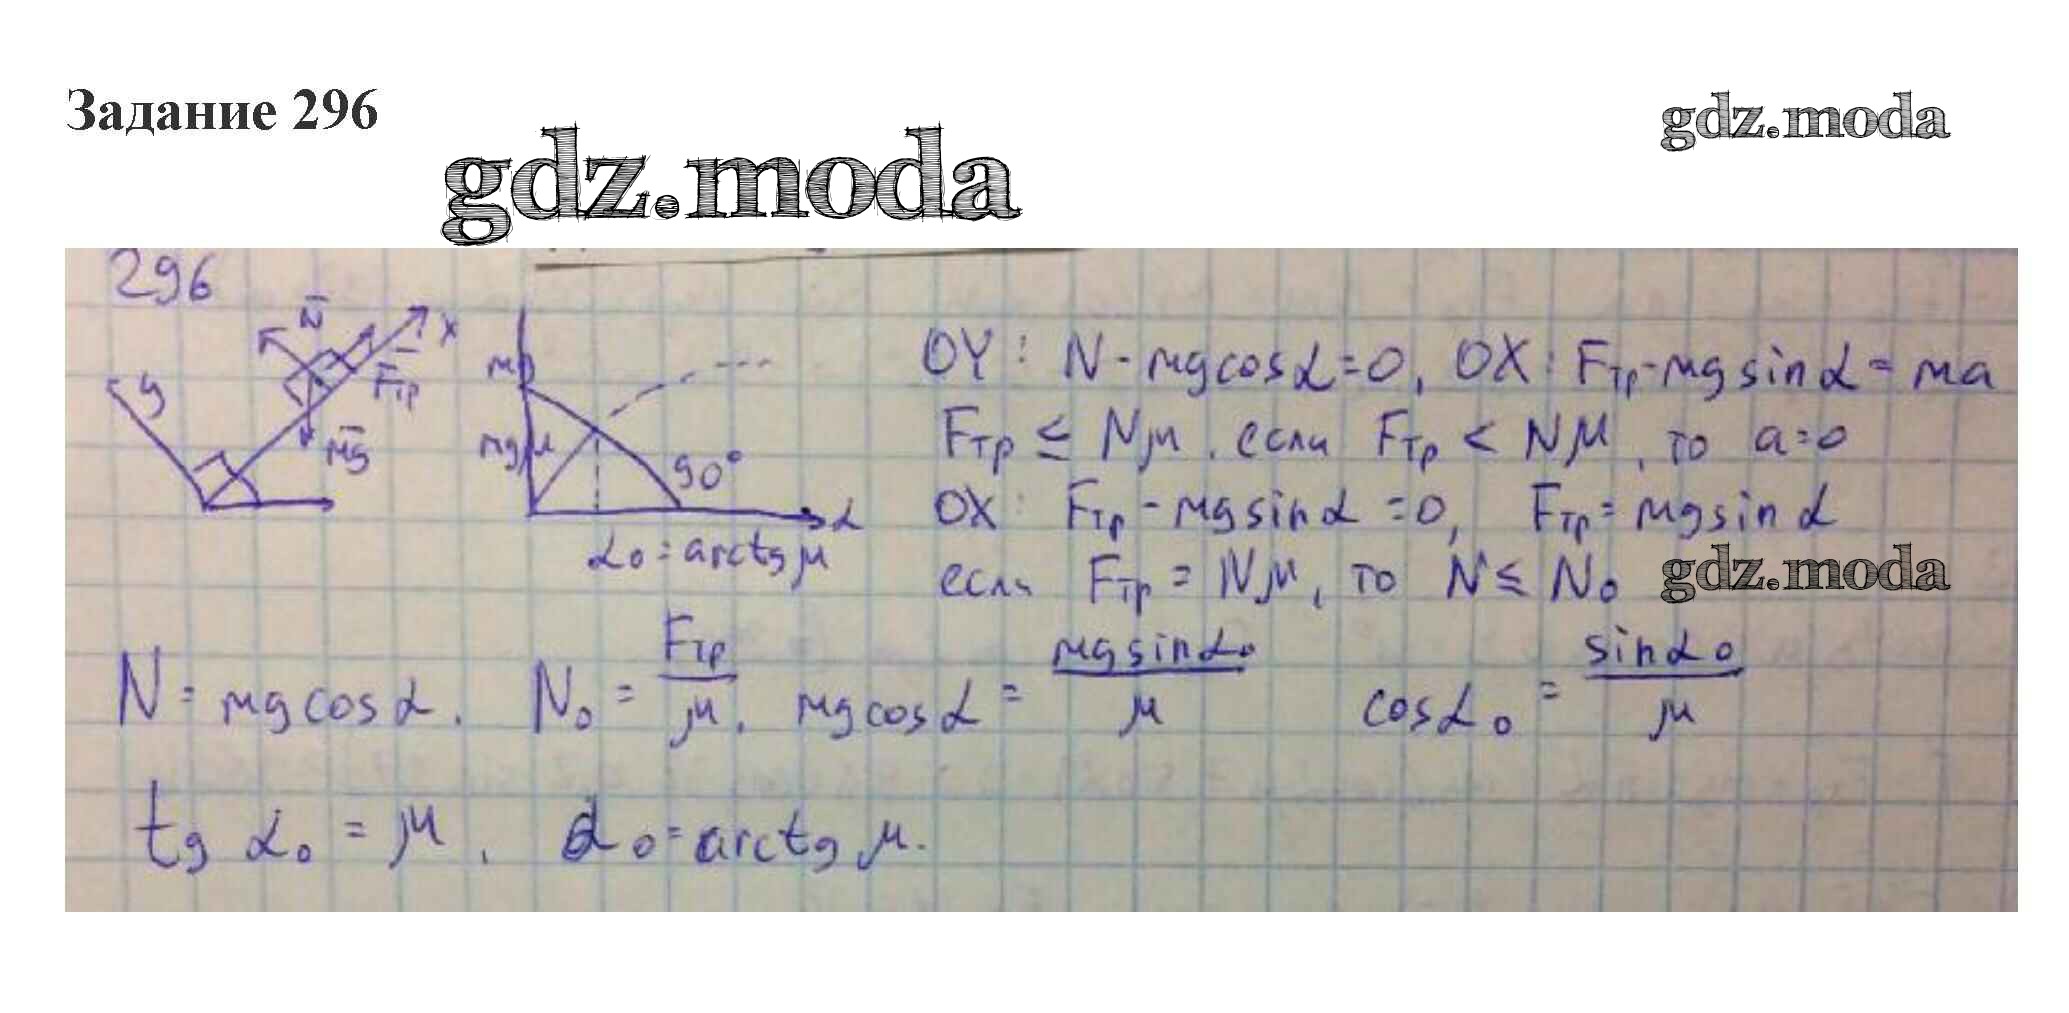 Задание 296
gdz.moda
gdz.moda
296
N̄
X
F̄тр
y
m̄g
mgμ
90°
α
α₀ = arctg μ
OY: N - mg cosα = 0, OX: Fтр - mg sinα = ma
Fтр ≤ Nμ. если Fтр < Nμ, то a = 0
OX: Fтр - mg sinα = 0, Fтр = mg sinα
если Fтр = Nμ, то N ≤ N₀
gdz.moda
N = mg cosα. N₀ = Fтр/μ. mg cosα = mg sinα₀/μ cosα₀ = sinα₀/μ
tg α₀ = μ, α₀ = arctg μ.